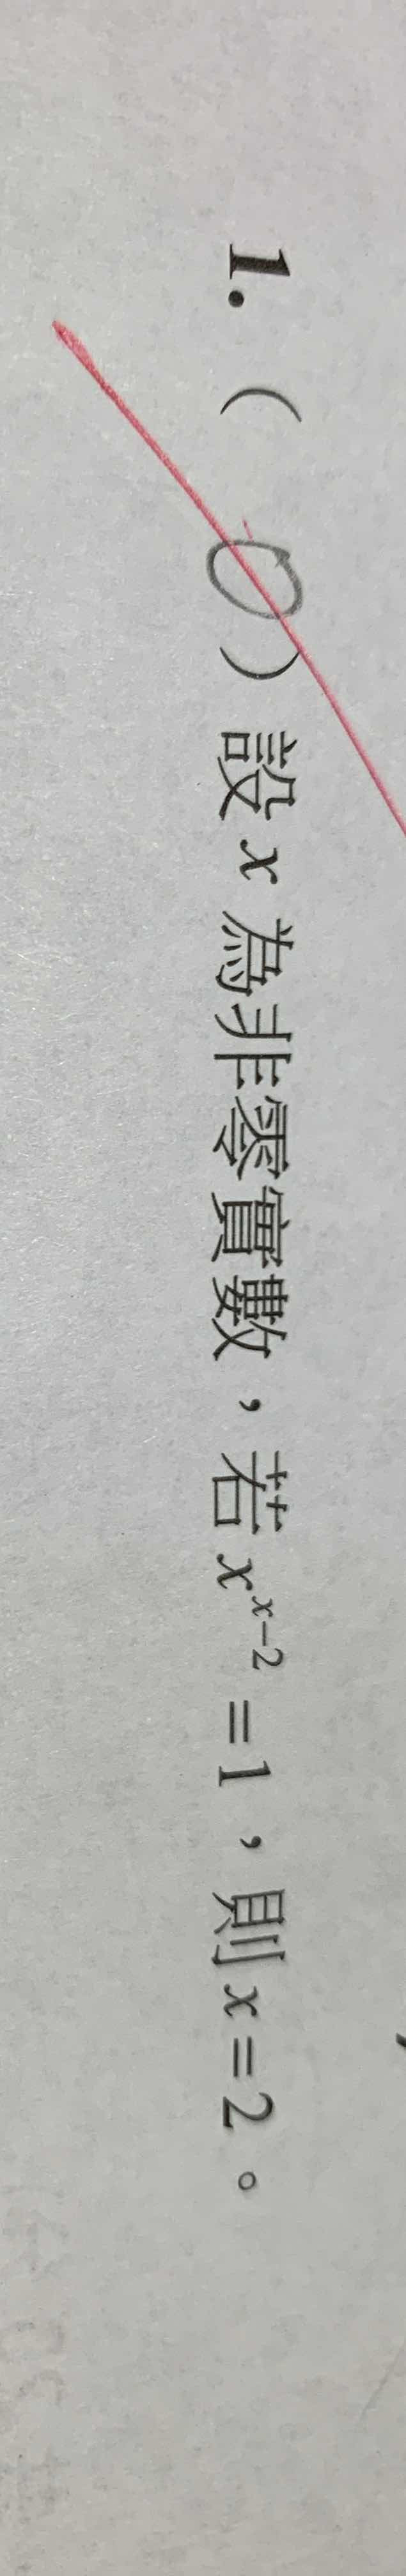 1. ( O ) 設 x 為非零實數，若 x^{x-2} = 1，則 x = 2。